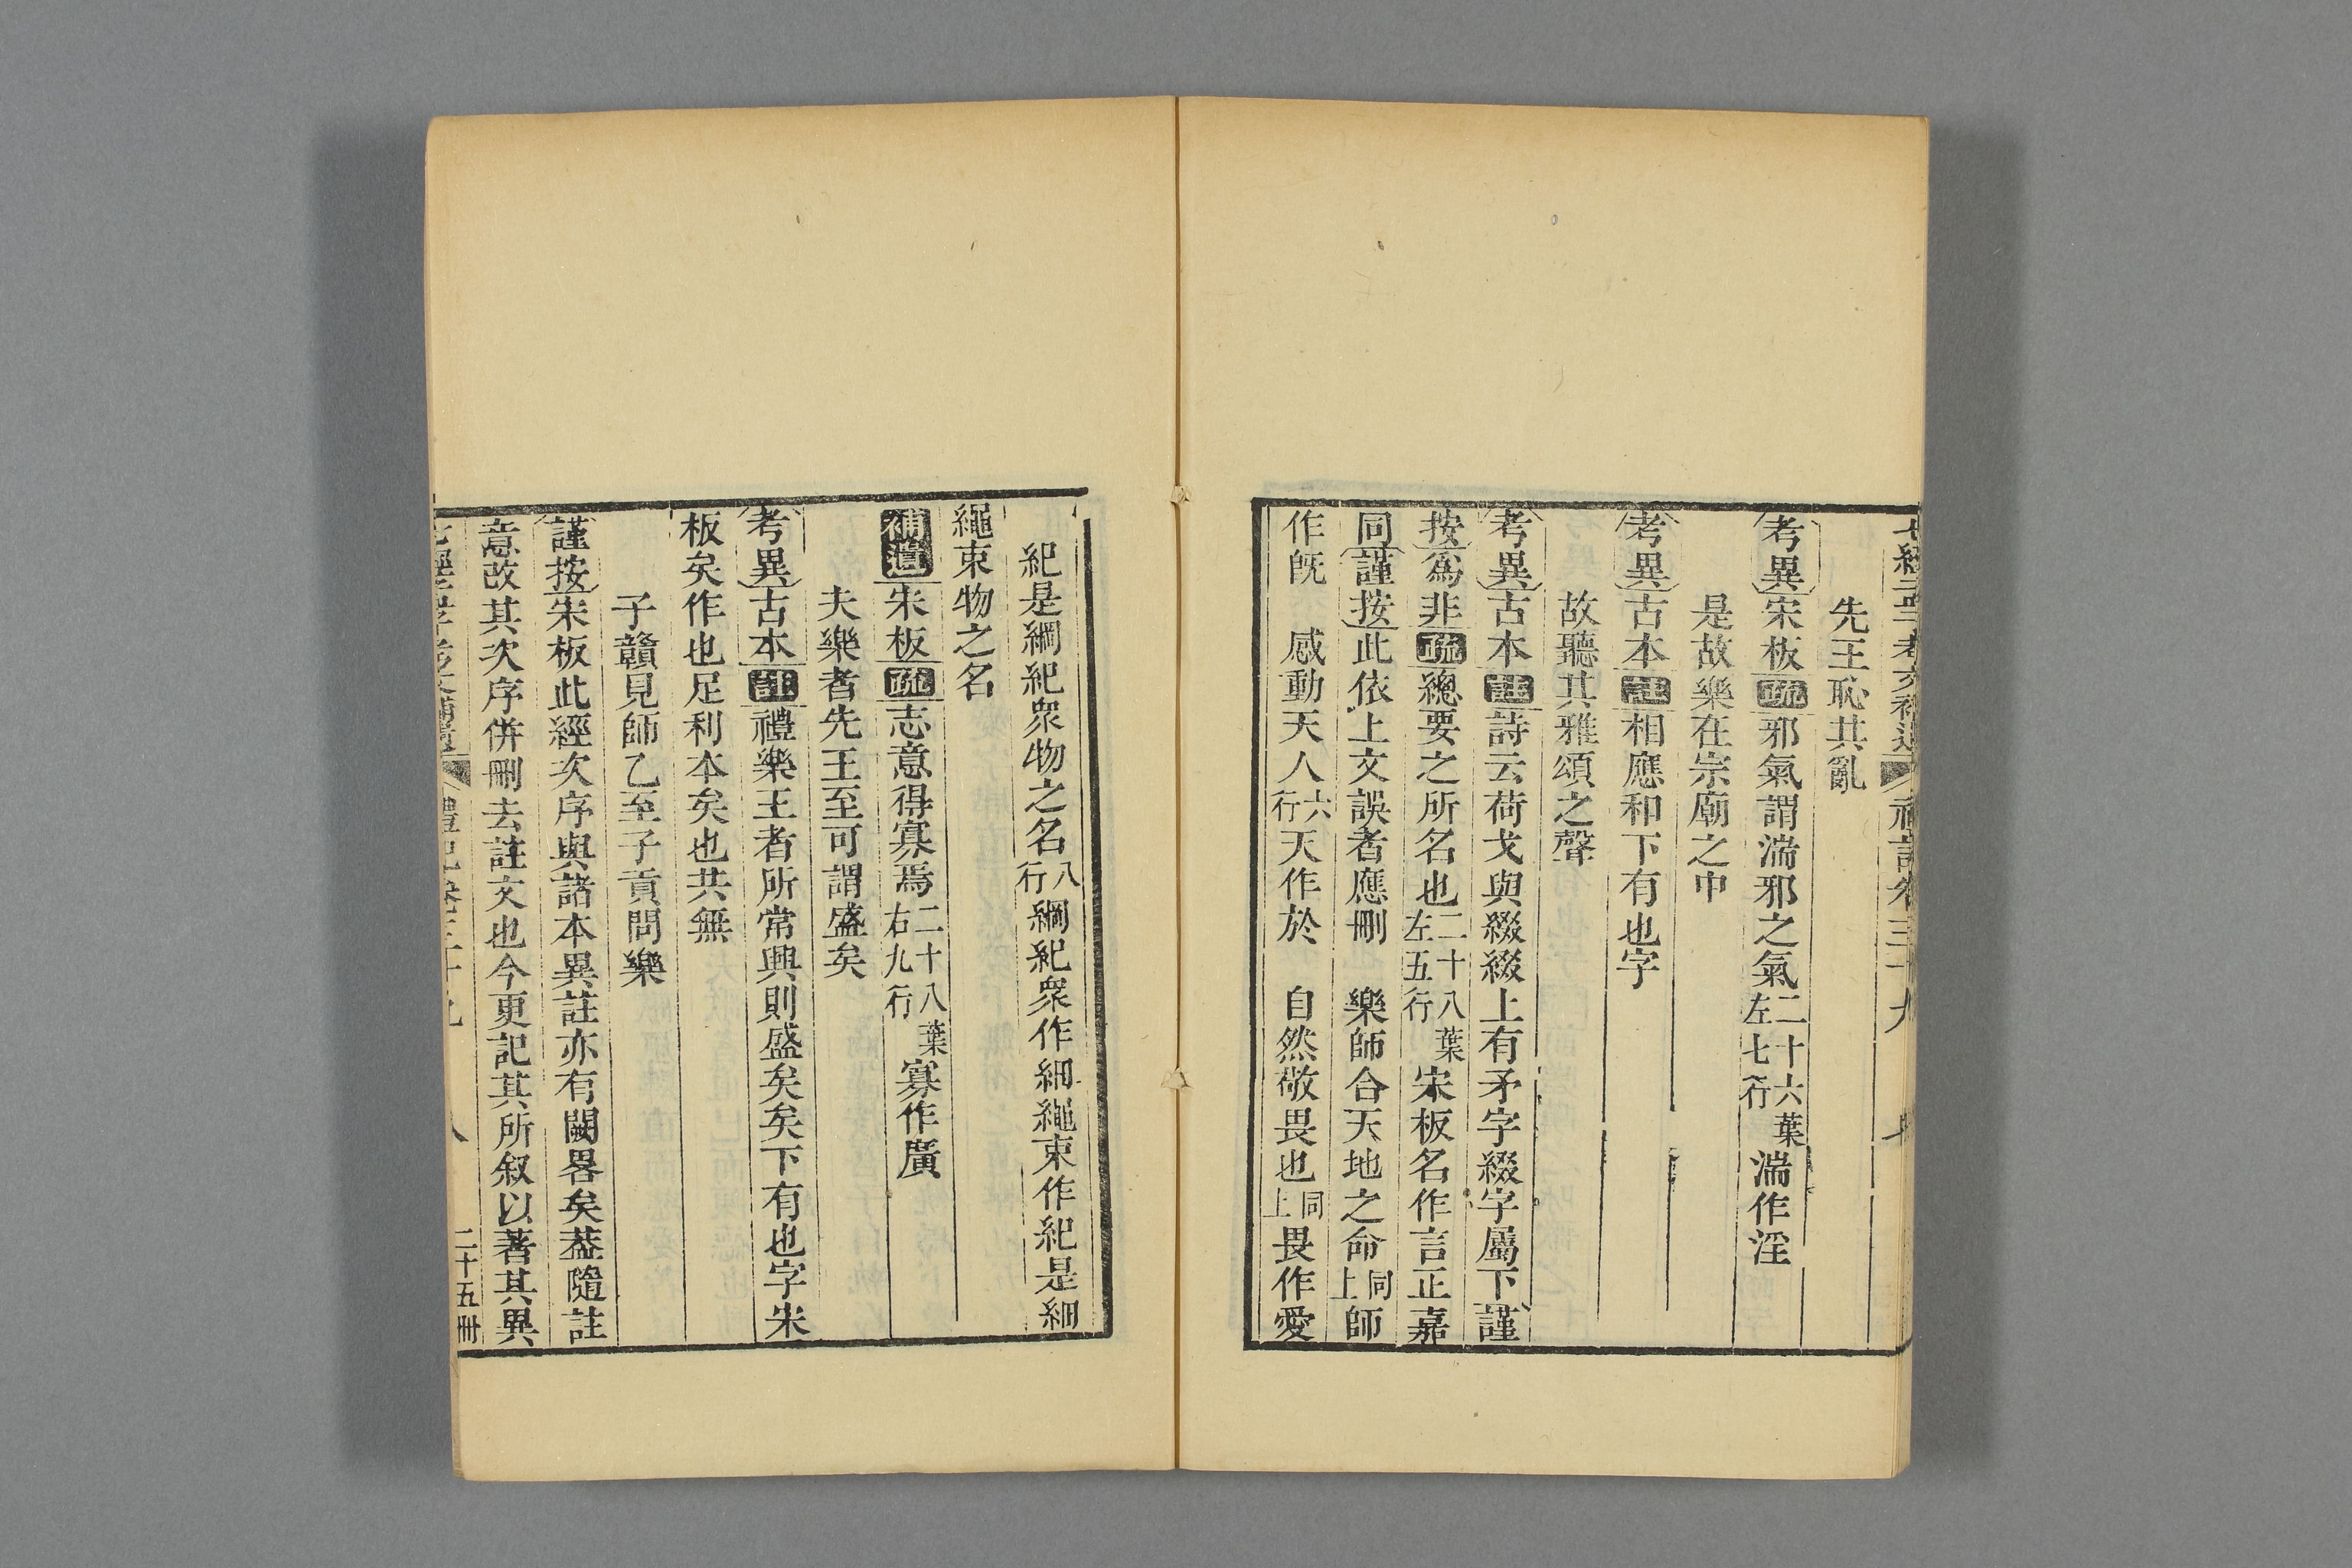 先王恥其亂
考異宋板疏邪氣謂湍邪之氣二十六葉左七行湍作淫
是故樂在宗廟之中
考異古本註相應和下有也字
故聽其雅頌之聲
考異古本註詩云荷戈與綴綴上有矛字綴字屬下謹
按爲非疏總要之所名也二十八葉左五行宋板名作言正嘉
同謹按此依上文誤者應刪 樂師合天地之命同上師
作旣 感動天人六行天作於 自然敬畏也同上畏作愛
紀是綱紀衆物之名八行綱紀衆作細繩束作紀是細
繩束物之名
補遺宋板疏志意得寡焉二十八葉右九行寡作廣
夫樂者先王至可謂盛矣
考異古本註禮樂王者所常興則盛矣矣下有也字宋
板矣作也足利本矣也共無
子贛見師乙至子貢問樂
謹按宋板此經次序與諸本異註亦有闕畧矣葢隨註
意改其次序併刪去註文也今更記其所叙以著其異
二十五冊